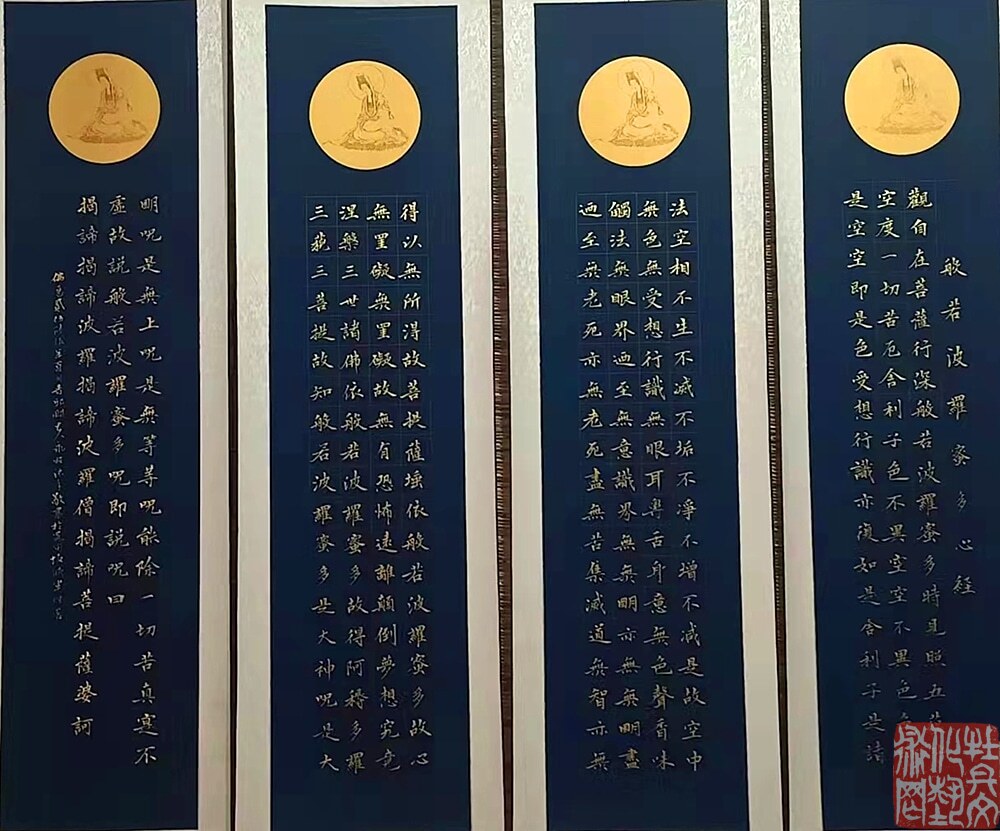 般若波羅蜜多心経
觀自在菩薩行深般若波羅蜜多特見照五
空度一切苦厄舍利子色不異空空不異色
是空空即是色受想行識亦復如是舍利子是諸
法空相不生不滅不垢不淨不增不减是故空中
無色無受想行識無眼耳鼻舌身意無色聲香味
觸法無眼界迺至無意識界無無明亦無無明盡
迺至無老死亦無老死盡無苦集滅道無智亦無
得以無所得故菩提薩埵依般若波羅蜜多故心
無罣礙無罣礙故無有恐怖遠離顛倒夢想究竟
涅槃三世諸佛依般若波羅蜜多故得阿耨多羅
三藐三菩提故知般若波羅蜜多是大神呪是大
明呪是無上呪是無等等呪能除一切苦真寔不
虛故說般若波羅蜜多呪即說呪曰
揭諦揭諦波羅揭諦波羅僧揭諦菩提薩婆訶